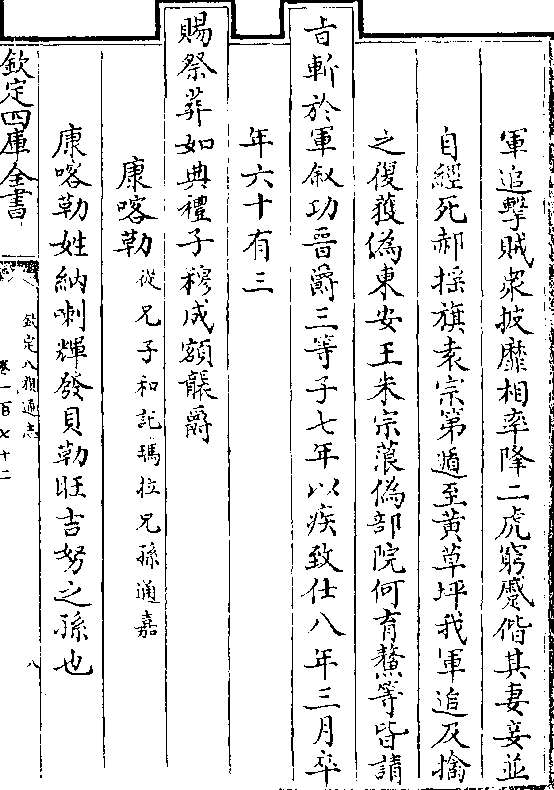 軍追擊賊衆披靡相率降二虎窮蹙偕其妻妾並
自經死郝揺旗袁宗第遁至黄草坪我軍追及擒
之復獲偽東安王朱宗蒗偽部院何育鰲等皆請
㫖斬於軍叙功晋爵三等子七年以疾致仕八年三月卒
年六十有三
賜祭葬如典禮子穆成額襲爵
康喀勒從兄子和託瑪拉兄孫通嘉
康喀勒姓納喇輝發貝勒旺吉努之孫也
欽定四庫全書
欽定八旗通志
卷一百七十二
八